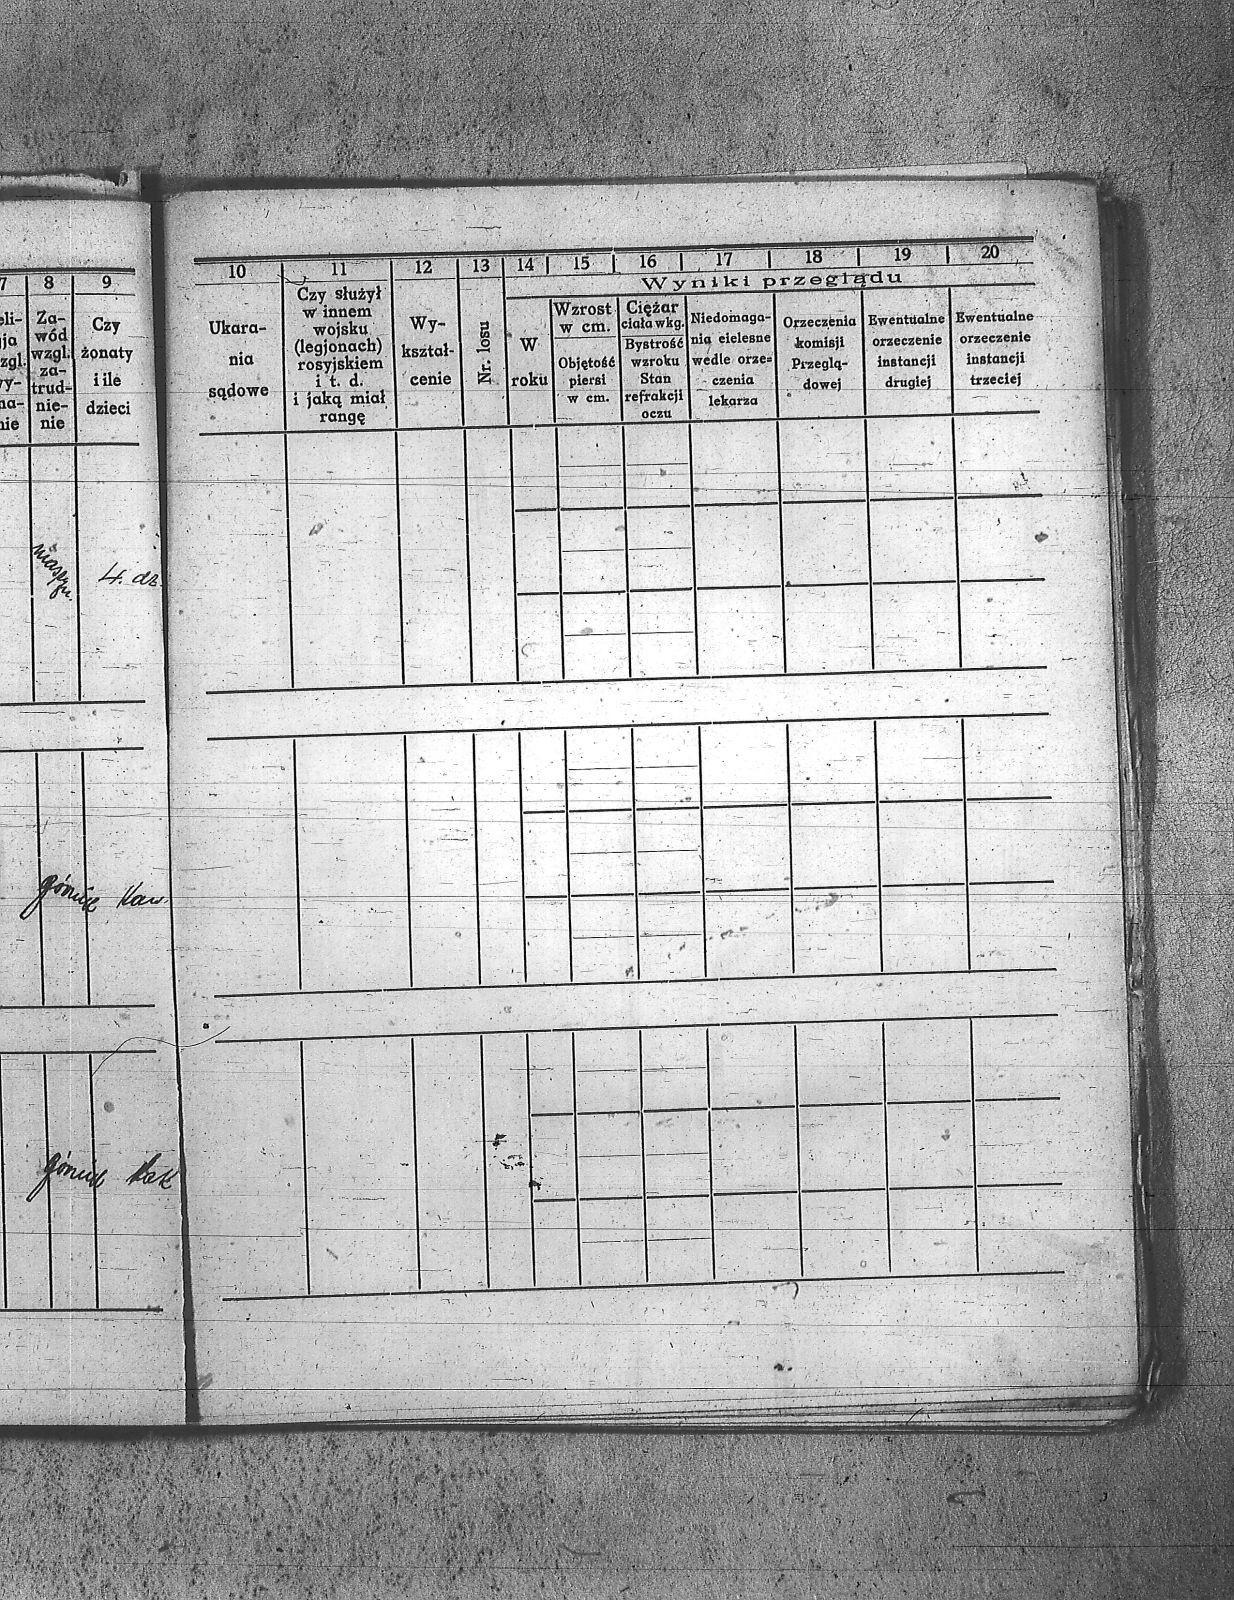 7 8 9
eli-
ja
zgl.
wy-
na-
nie
Za-
wód
wzgl.
za-
trud-
nie-
nie
Czy
żonaty
i ile
dzieci
4. dz.
górnik kaw.
górnik
10 11 12 13 14 15 16 17 18 19 20
Wyniki przeglądu
Ukara-
nia
sądowe
Czy służył
w innem
wojsku
(legjonach)
rosyjskiem
i t. d.
i jaką miał
rangę
Wy-
kształ-
cenie
Nr. losu
W
roku
Wzrost
w cm.
Objętość
piersi
w cm.
Ciężar
ciała wkg.
Bystrość
wzroku
Stan
refrakcji
oczu
Niedomaga-
nia cielesne
wedle orze=
czenia
lekarza
Orzeczenia
komisji
Przeglą-
dowej
Ewentualne
orzeczenie
instancji
drugiej
Ewentualne
orzeczenie
instancji
trzeciej